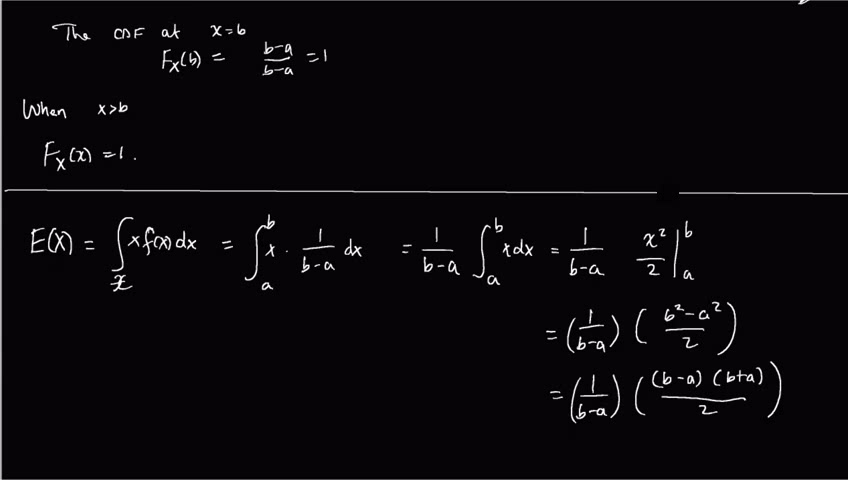 The CDF at x=b
F_X(b) = (b-a)/(b-a) = 1
When x>b
F_X(x) = 1.
E(X) = ∫_𝒳 x f(x) dx = ∫_a^b x · 1/(b-a) dx = 1/(b-a) ∫_a^b x dx = 1/(b-a) x²/2 |_a^b
= (1/(b-a)) ((b²-a²)/2)
= (1/(b-a)) ((b-a)(b+a)/2)